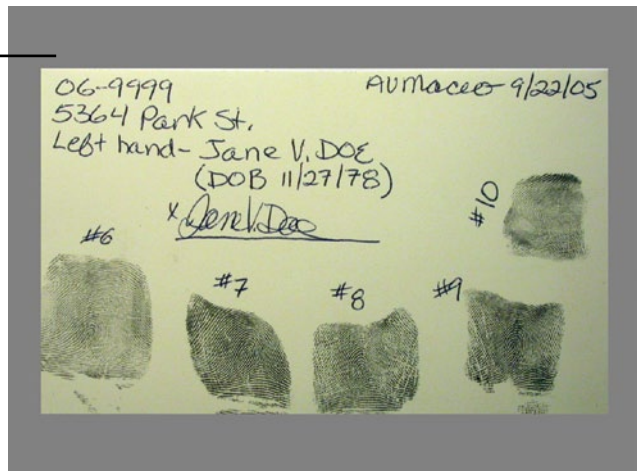 06-9999
AVMaceo 9/22/05
5364 Park St.
Left hand- Jane V. DOE
(DOB 11/27/78)
x Jane V. Doe
#10
#6
#7
#8
#9